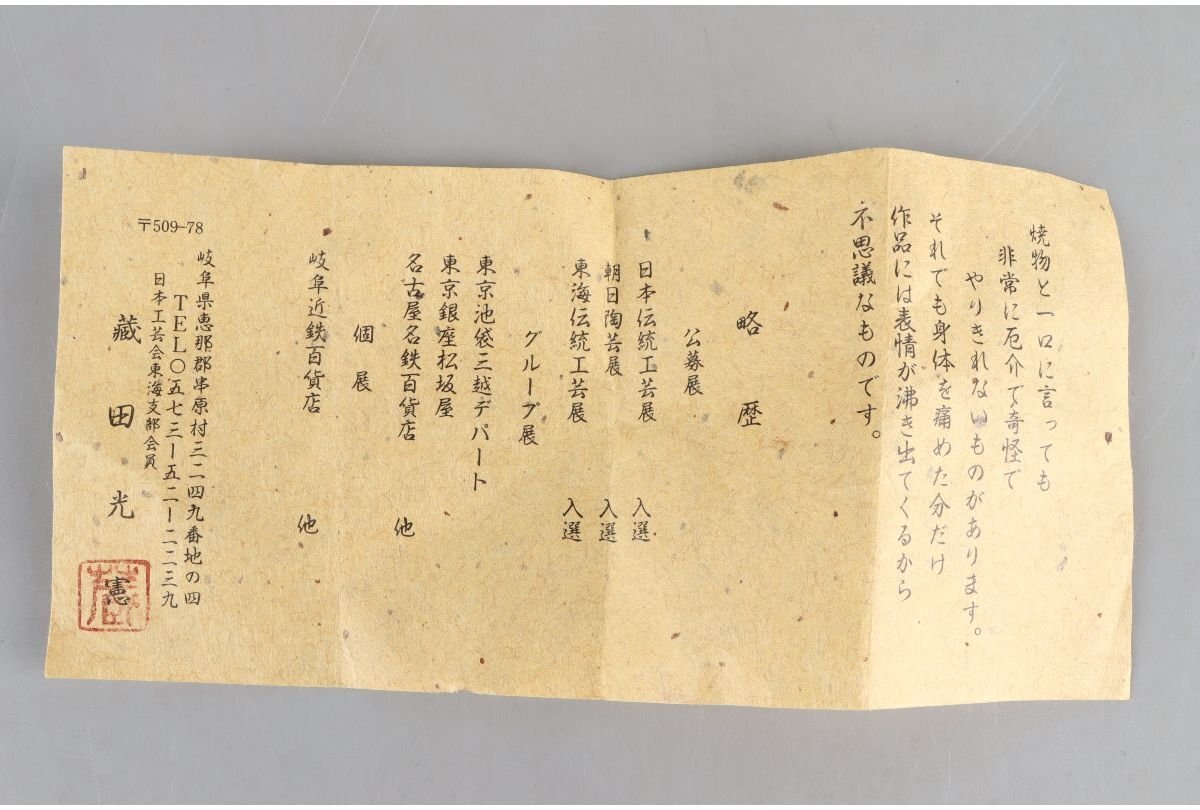 焼物と一口に言っても
非常に厄介で奇怪で
やりきれないものがあります。
それでも身体を痛めた分だけ
作品には表情が沸き出てくるから
不思議なものです。
略歴
公募展
日本伝統工芸展 入選
朝日陶芸展 入選
東海伝統工芸展 入選
グループ展
東京池袋三越デパート
東京銀座松坂屋
名古屋名鉄百貨店 他
個展
岐阜近鉄百貨店 他
〒509-78
岐阜県恵那郡串原村三二四九番地の四
TEL〇五七三ー五二ー二二三九
日本工芸会東海支部会員
藏田光憲